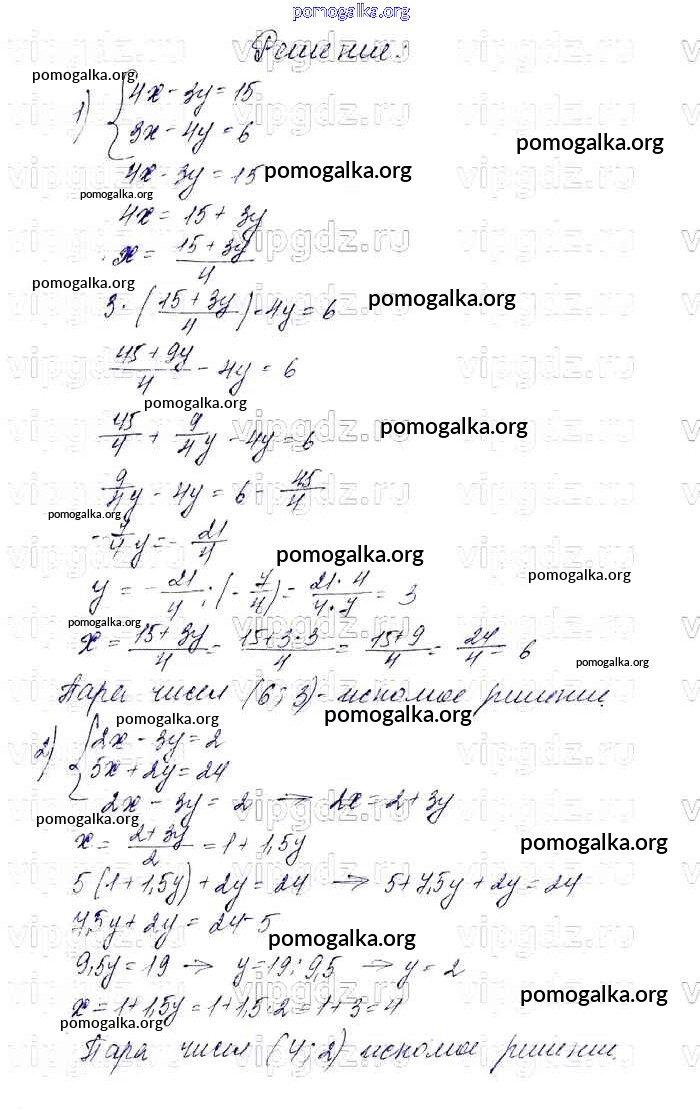 pomogalka.org
Решение:
pomogalka.org
1) { 4x - 3y = 15
3x - 4y = 6
pomogalka.org
4x - 3y = 15 pomogalka.org
pomogalka.org
4x = 15 + 3y
vipgdz.ru
x = (15 + 3y)/4
pomogalka.org
3 · ((15 + 3y)/4) - 4y = 6 pomogalka.org
(45 + 9y)/4 - 4y = 6
pomogalka.org
45/4 + 9/4 y - 4y = 6 pomogalka.org
9/4 y - 4y = 6 - 45/4
pomogalka.org
-7/4 y = - 21/4
pomogalka.org
pomogalka.org
y = - 21/4 : (- 7/4) = (21 · 4)/(4 · 7) = 3
pomogalka.org
x = (15 + 3y)/4 = (15 + 3 · 3)/4 = (15 + 9)/4 = 24/4 = 6
pomogalka.org
Пара чисел (6; 3) - искомое решение.
pomogalka.org pomogalka.org
2) { 2x - 3y = 2
5x + 2y = 24
2x - 3y = 2 → 2x = 2 + 3y
pomogalka.org
x = (2 + 3y)/2 = 1 + 1,5y pomogalka.org
5(1 + 1,5y) + 2y = 24 → 5 + 7,5y + 2y = 24
7,5y + 2y = 24 - 5
pomogalka.org
9,5y = 19 → y = 19 : 9,5 → y = 2
pomogalka.org
x = 1 + 1,5y = 1 + 1,5 · 2 = 1 + 3 = 4
pomogalka.org
Пара чисел (4; 2) искомое решение.